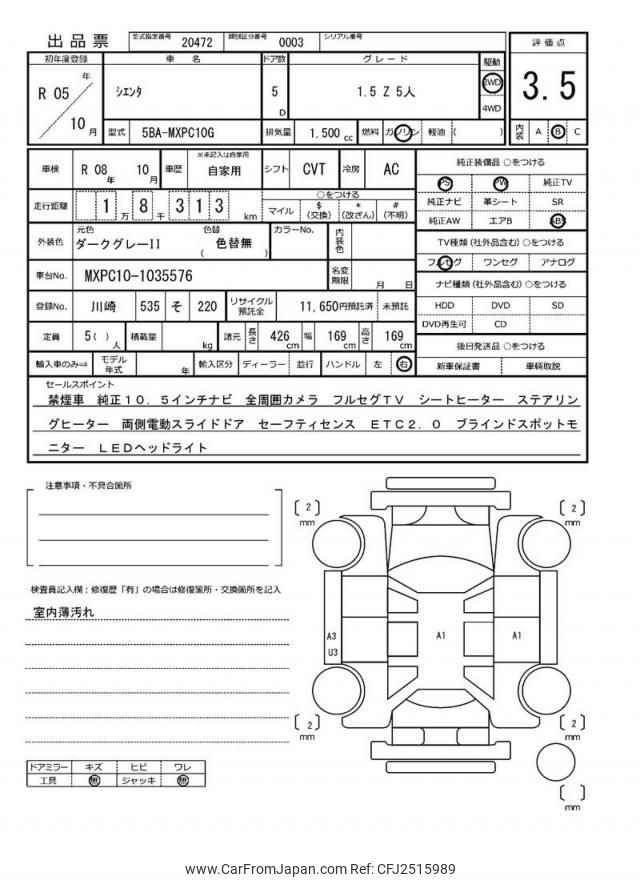 出品票 型式指定番号 20472 類別区分番号 0003 シリアル番号
初年度登録 車名 ドア数 グレード 駆動 評価点
R 05 年 10 月 シエンタ 5 D 1.5 Z 5人 2WD 4WD 3.5
型式 5BA-MXPC10G 排気量 1.500 cc 燃料 ガソリン 軽油 ( ) 内装 A B C
車検 R 08 年 10 月 車歴 ※未記入は自家用 自家用 シフト CVT 冷房 AC 純正装備品 ○をつける
PS PW 純正TV
走行距離 1 万 8 千 3 1 3 km ○をつける マイル $ (交換) * (改ざん) # (不明) 純正ナビ 革シート SR
純正AW エアB ABS
外装色 元色 ダークグレーII 色替 ( 色替無 ) カラーNo. 内装色 TV種類 (社外品含む) ○をつける
フルセグ ワンセグ アナログ
車台No. MXPC10-1035576 名変期限 月 日 ナビ種類 (社外品含む) ○をつける
登録No. 川崎 535 そ 220 リサイクル預託金 11,650円預託済 未預託 HDD DVD SD
DVD再生可 CD
定員 5( ) 人 積載量 kg 諸元 長さ 426 cm 幅 169 cm 高さ 169 cm 後日発送品 ○をつける
輸入車のみ⇒ モデル年式 年 輸入区分 ディーラー 並行 ハンドル 左 右 新車保証書 車輌取説
セールスポイント
禁煙車 純正10.5インチナビ 全周囲カメラ フルセグTV シートヒーター ステアリン
グヒーター 両側電動スライドドア セーフティセンス ETC2.0 ブラインドスポットモ
ニター LEDヘッドライト
注意事項・不具合箇所
検査員記入欄：修復歴「有」の場合は修復箇所・交換箇所を記入
室内薄汚れ
[2] mm [2] mm
A3 U3 A1 A1
[2] mm [2] mm
[ ] mm
ドアミラー キズ ヒビ ワレ
工具 無 ジャッキ 無
www.CarFromJapan.com Ref: CFJ2515989